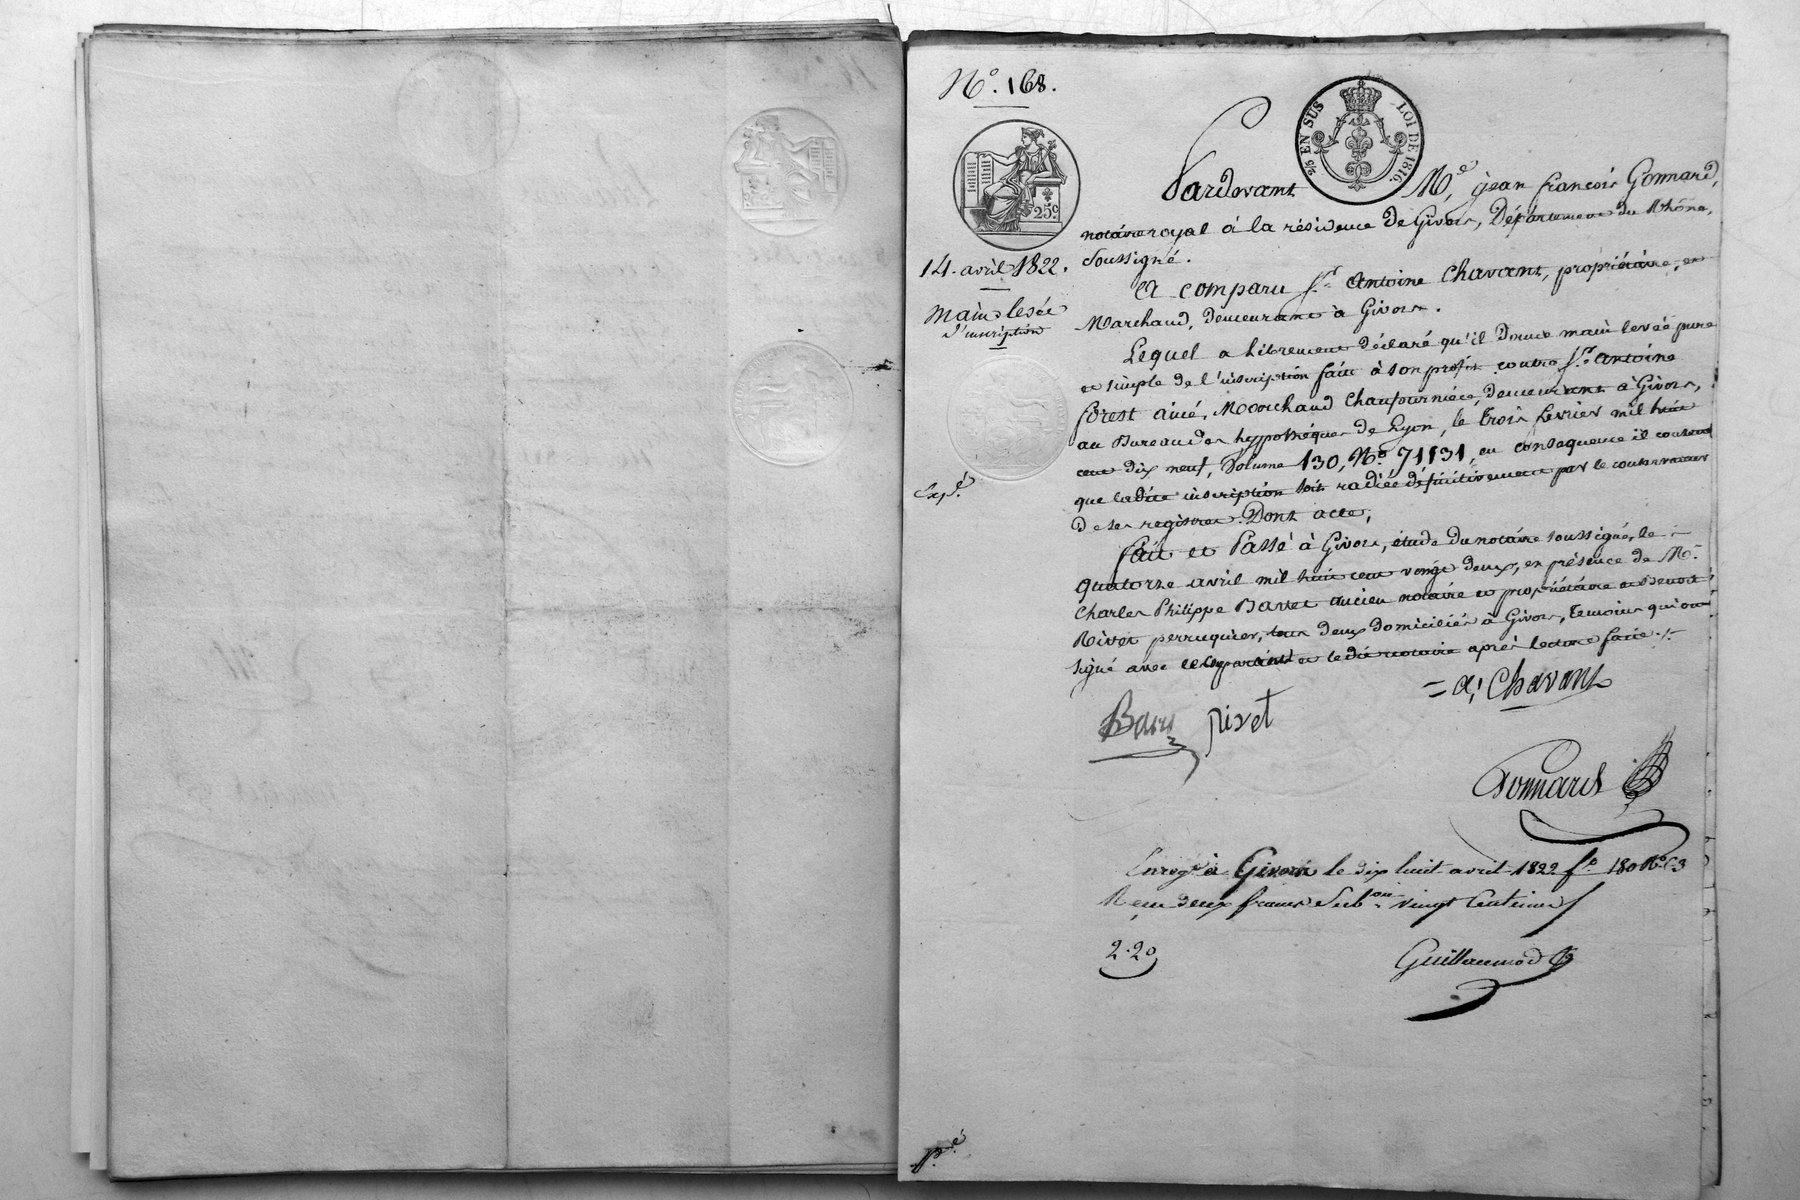 N.° 168.
2/5 EN SUS LOI DE 1816.
25c
14. avril 1822.
Main-levée
d'inscription
Expé.
Pardevant M.e jean françois Gonnard,
notaire royal à la résidence de Givors, Département du Rhône,
Soussigné.
A comparu S.r Antoine Chavant, propriétaire, et
Marchand, demeurant à Givors.
Lequel a librement déclaré qu'il donne main levée pure
et simple de l'inscription faite à son profit contre S.r antoine
forest ainé, Marchand Chaufournier, demeurant à Givors,
au Bureau des hyppothéques de Lyon, le trois fevrier mil huit
cent dix neuf, Volume 130, N.° 71131, en consequence il consent
que ladite inscription soit radiée définitivement par le conservateur
de ses registres. Dont acte,
fait et Passé à Givors, étude du notaire soussigné, le
quatorze avril mil huit cent vingt deux, en présence de M.r
Charles Philippe Barret ancien notaire et propriétaire et Benoit
Rivet perruquier, tous deux domiciliés à Givors, temoins qui ont
signé avec le comparant et ledit notaire après lecture faite ./.
= A, Chavant
Rivet
Gonnard
Enreg.é à Givors le dix huit avril 1822 f.° 180 R.° C 3
Reçu deux francs Sub.on vingt Centimes
2.20
Guillaumod
p.é